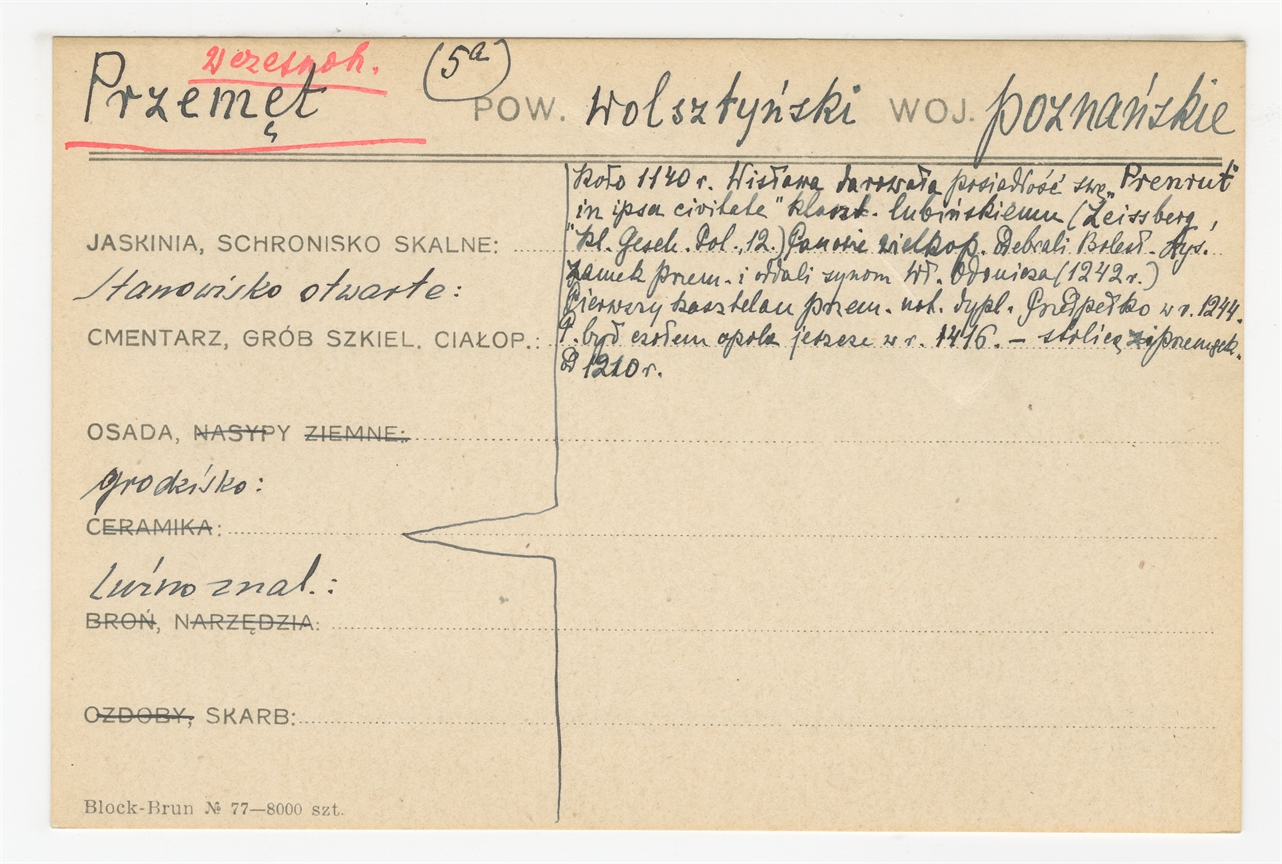 Wczesnoh.
Przemęt (5a) POW. wolsztyński WOJ. poznańskie
Koło 1140 r. Wisława darowała posiadłość swą „Prenrut"
in ipsa civitate" klaszt. lubińskiemu (Zeissberg,
JASKINIA, SCHRONISKO SKALNE:
"Kl. Gesch. Pol., 12.) Panowie wielkop. Debrali Bolesł. Łys.
Stanowisko otwarte:
zamek przem. i oddali synom Wł. Odonicza (1242 r.)
Pierwszy kasztelan przem. not. dypl. Przedpełko w r. 1244.
CMENTARZ, GRÓB SZKIEL. CIAŁOP.:
P. był czołem opola jeszcze w r. 1416. – stolicą
D 1210 r.
OSADA, NASYPY ZIEMNE:
grodzisko:
CERAMIKA:
Luźno znal.:
BROŃ, NARZĘDZIA:
OZDOBY, SKARB:
Block-Brun № 77—8000 szt.